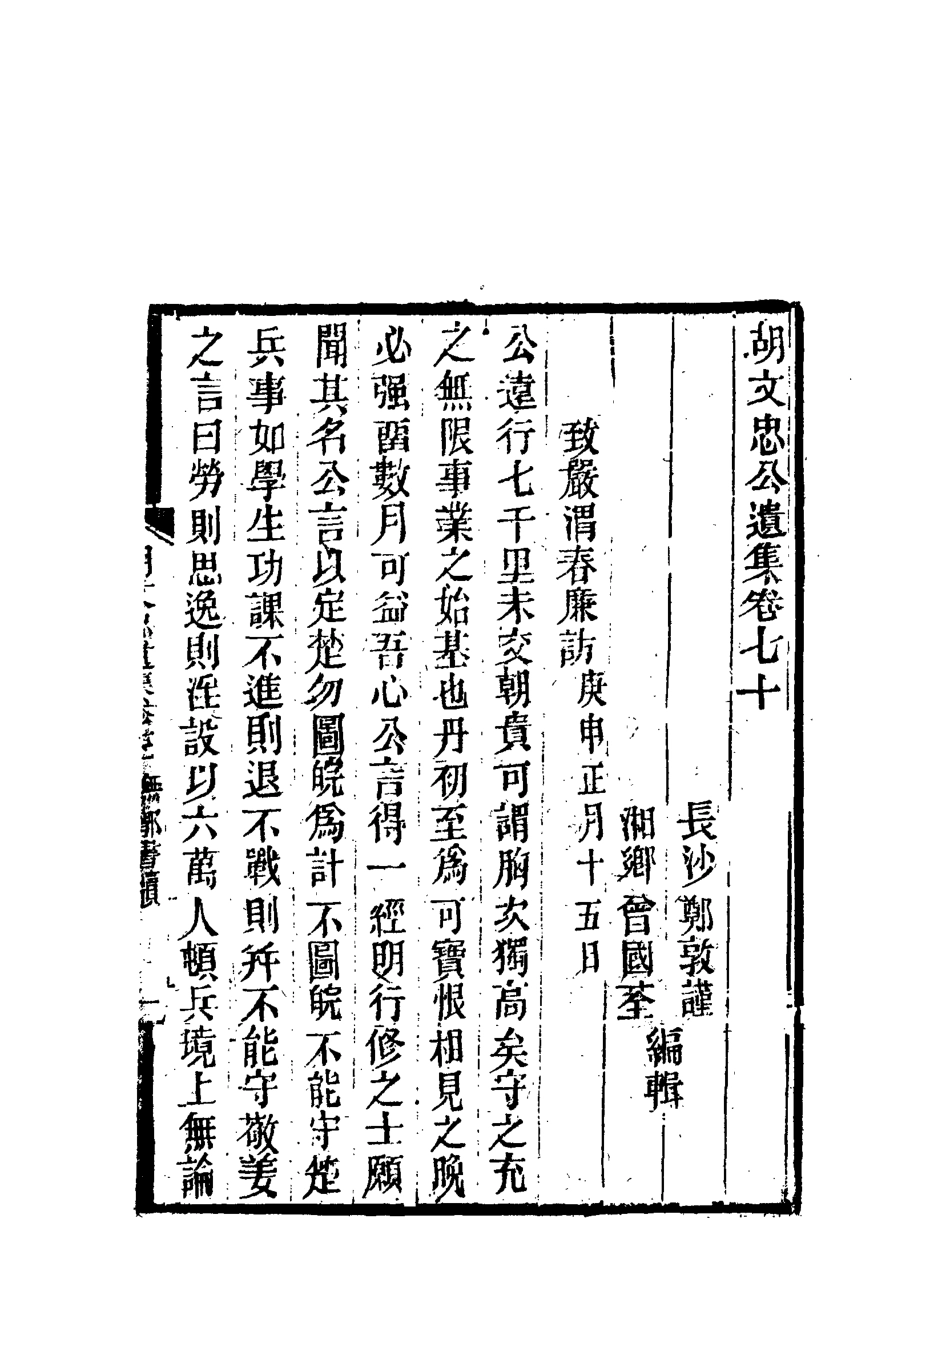 胡文忠公遺集卷七十
長沙鄭敦謹
湘鄉曾國荃
編輯
致嚴渭春廉訪庚申正月十五日
公遠行七千里未交朝貴可謂胸次獨高矣守之充
之無限事業之始基也丹初至爲可寶恨相見之晚
必强畱數月可益吾心公言得一經明行修之士願
聞其名公言以定楚勿圖皖爲計不圖皖不能守楚
兵事如學生功課不進則退不戰則并不能守敬姜
之言曰勞則思逸則淫設以六萬人頓兵境上無論
撫鄂書牘